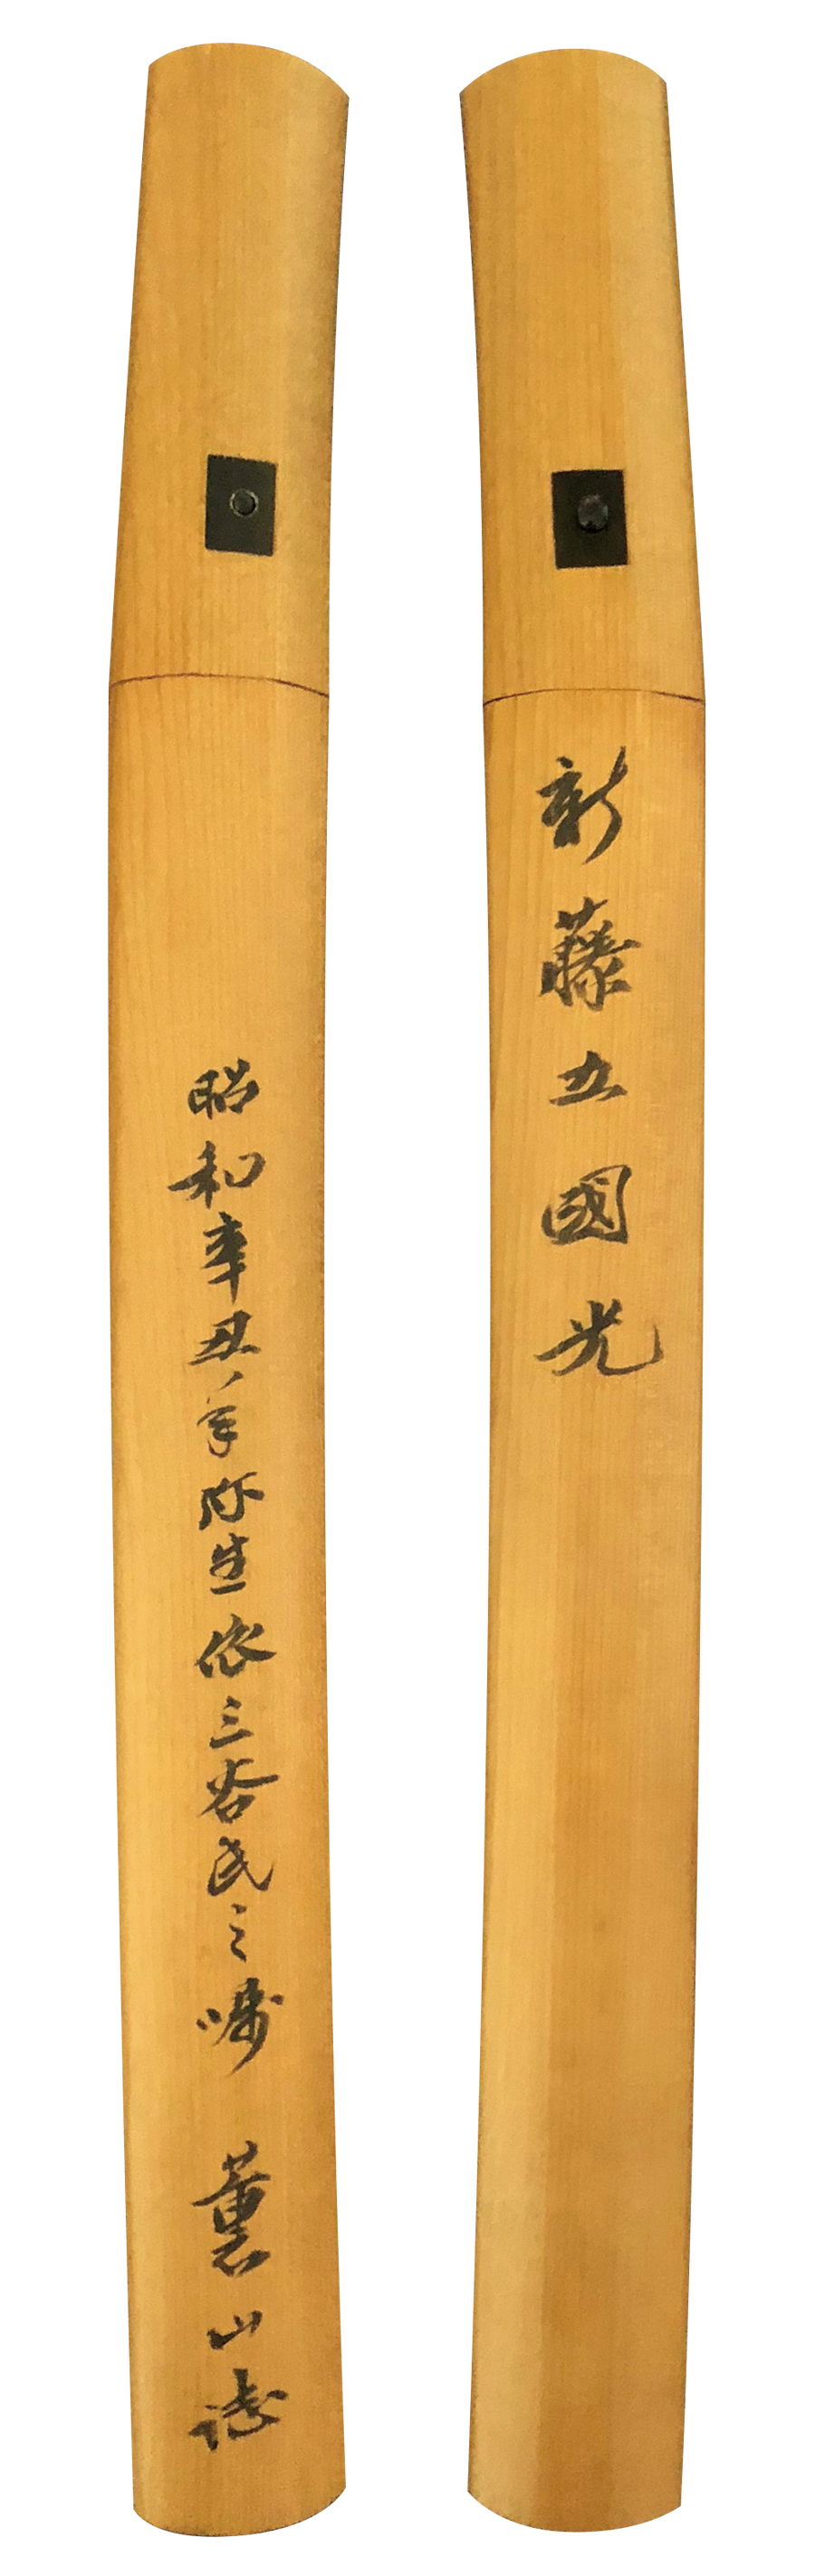 新藤五國光
昭和辛丑年弥生依三谷氏之嘱 薫山誌